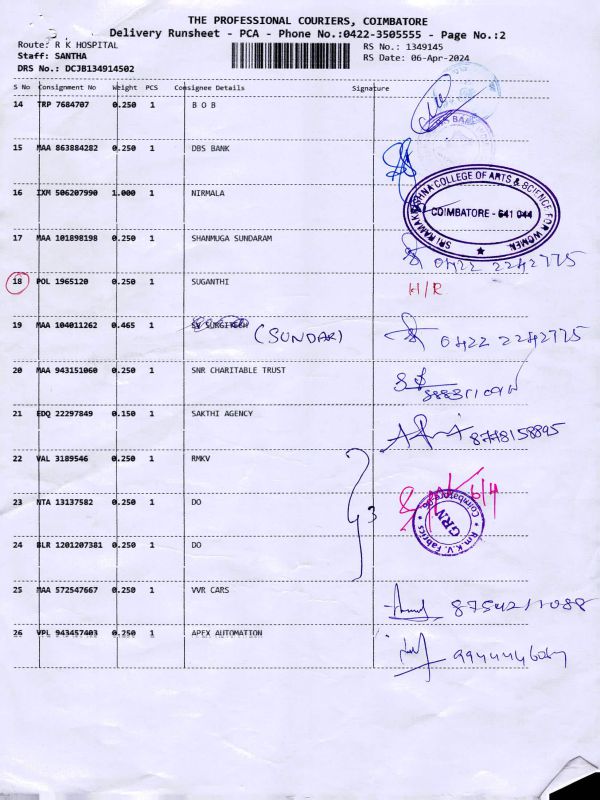 THE PROFESSIONAL COURIERS, COIMBATORE
Delivery Runsheet - PCA - Phone No.:0422-3505555 - Page No.:2
Route: R K HOSPITAL
RS No.: 1349145
Staff: SANTHA
RS Date: 06-Apr-2024
DRS No.: DCJB134914502
S No Consignment No Weight PCS Consignee Details Signature
14 TRP 7684707 0.250 1 B O B
15 MAA 863884282 0.250 1 DBS BANK
16 IXM 506207990 1.000 1 NIRMALA
SRI RAMAKRISHNA COLLEGE OF ARTS & SCIENCE FOR WOMEN
COIMBATORE - 641 044
17 MAA 101898198 0.250 1 SHANMUGA SUNDARAM 0422 2242775
18 POL 1965120 0.250 1 SUGANTHI H/R
19 MAA 104011262 0.465 1 SV SURGITECH (SUNDAR) 0422 2242775
20 MAA 943151060 0.250 1 SNR CHARITABLE TRUST
21 EDQ 22297849 0.150 1 SAKTHI AGENCY 8778158895
22 VAL 3189546 0.250 1 RMKV
23 NTA 13137582 0.250 1 DO 3 6/4
R.m.K.V. Fabrics Coimbatore
GRN
24 BLR 1201207381 0.250 1 DO
25 MAA 572547667 0.250 1 VVR CARS
26 VPL 943457403 0.250 1 APEX AUTOMATION